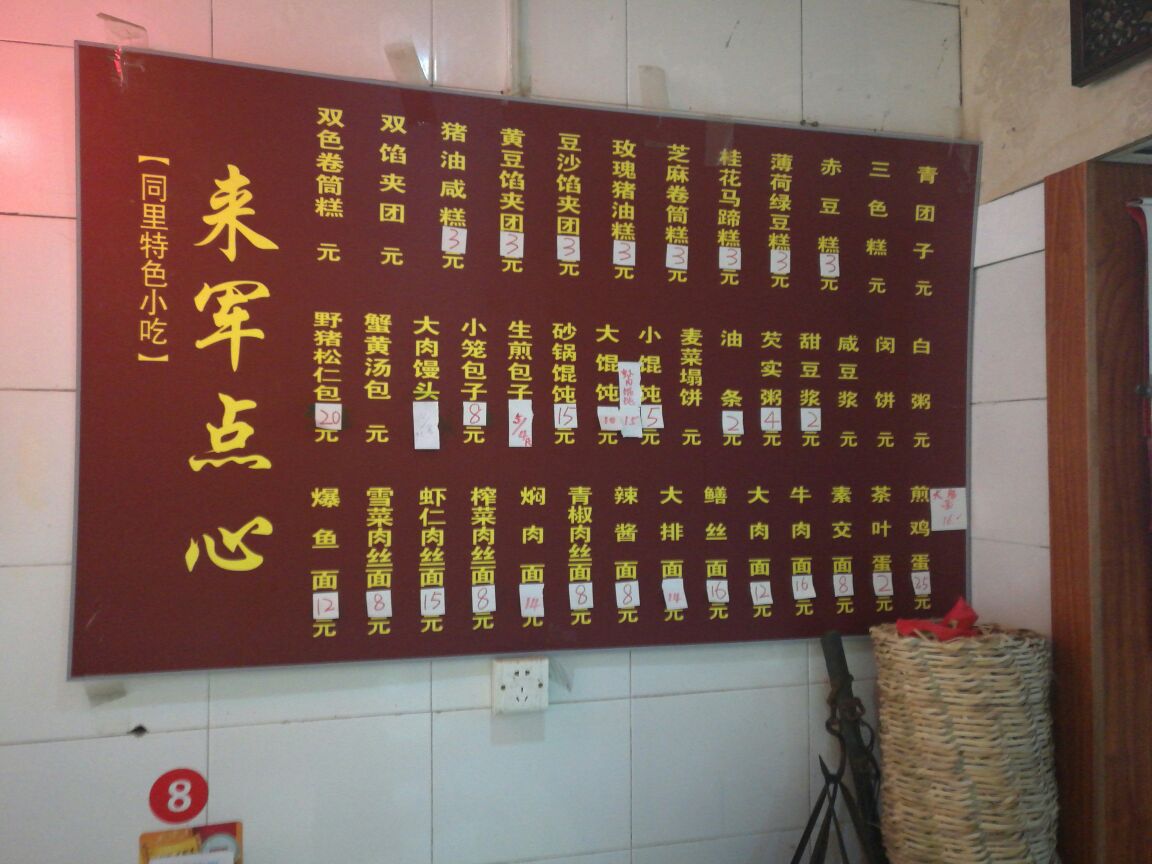 来军点心
【同里特色小吃】
双色卷筒糕 元
双馅夹团 元
猪油咸糕 3 元
黄豆馅夹团 3 元
豆沙馅夹团 3 元
玫瑰猪油糕 3 元
芝麻卷筒糕 3 元
桂花马蹄糕 3 元
薄荷绿豆糕 3 元
赤豆糕 3 元
三色糕 元
青团子 元
野猪松仁包 20 元
蟹黄汤包 元
大肉馒头
小笼包子 8 元
生煎包子 5/4只
砂锅馄饨 15 元
大馄饨 10 元
15
小馄饨 5 元
麦菜塌饼 元
油条 2 元
芡实粥 4 元
甜豆浆 2 元
咸豆浆 元
闵饼 元
白粥 元
爆鱼面 12 元
雪菜肉丝面 8 元
虾仁肉丝面 15 元
榨菜肉丝面 8 元
焖肉面 14 元
青椒肉丝面 8 元
辣酱面 8 元
大排面 14 元
鳝丝面 16 元
大肉面 12 元
牛肉面 16 元
素交面 8 元
茶叶蛋 2 元
煎鸡蛋 25 元
大肠面 16
8